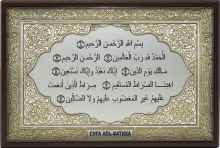 بسم الله الرحمن الرحيم
الحمد لله رب العالمين الرحمن الرحيم
مالك يوم الدين إياك نعبد وإياك نستعين
اهدنا الصراط المستقيم صراط الذين أنعمت
عليهم غير المغضوب عليهم ولا الضالين
СУРА АЛЬ-ФАТИХА